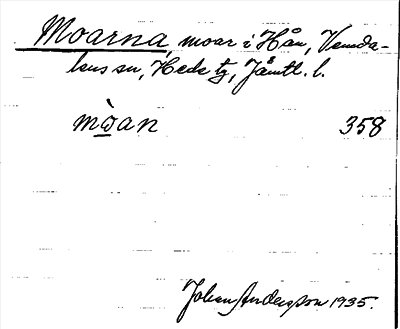 Moarna, moar i Hån, Vemda-
lens sn, Hede tg, Jämtl. l.
mωàn 358
Johan Andersson 1935.